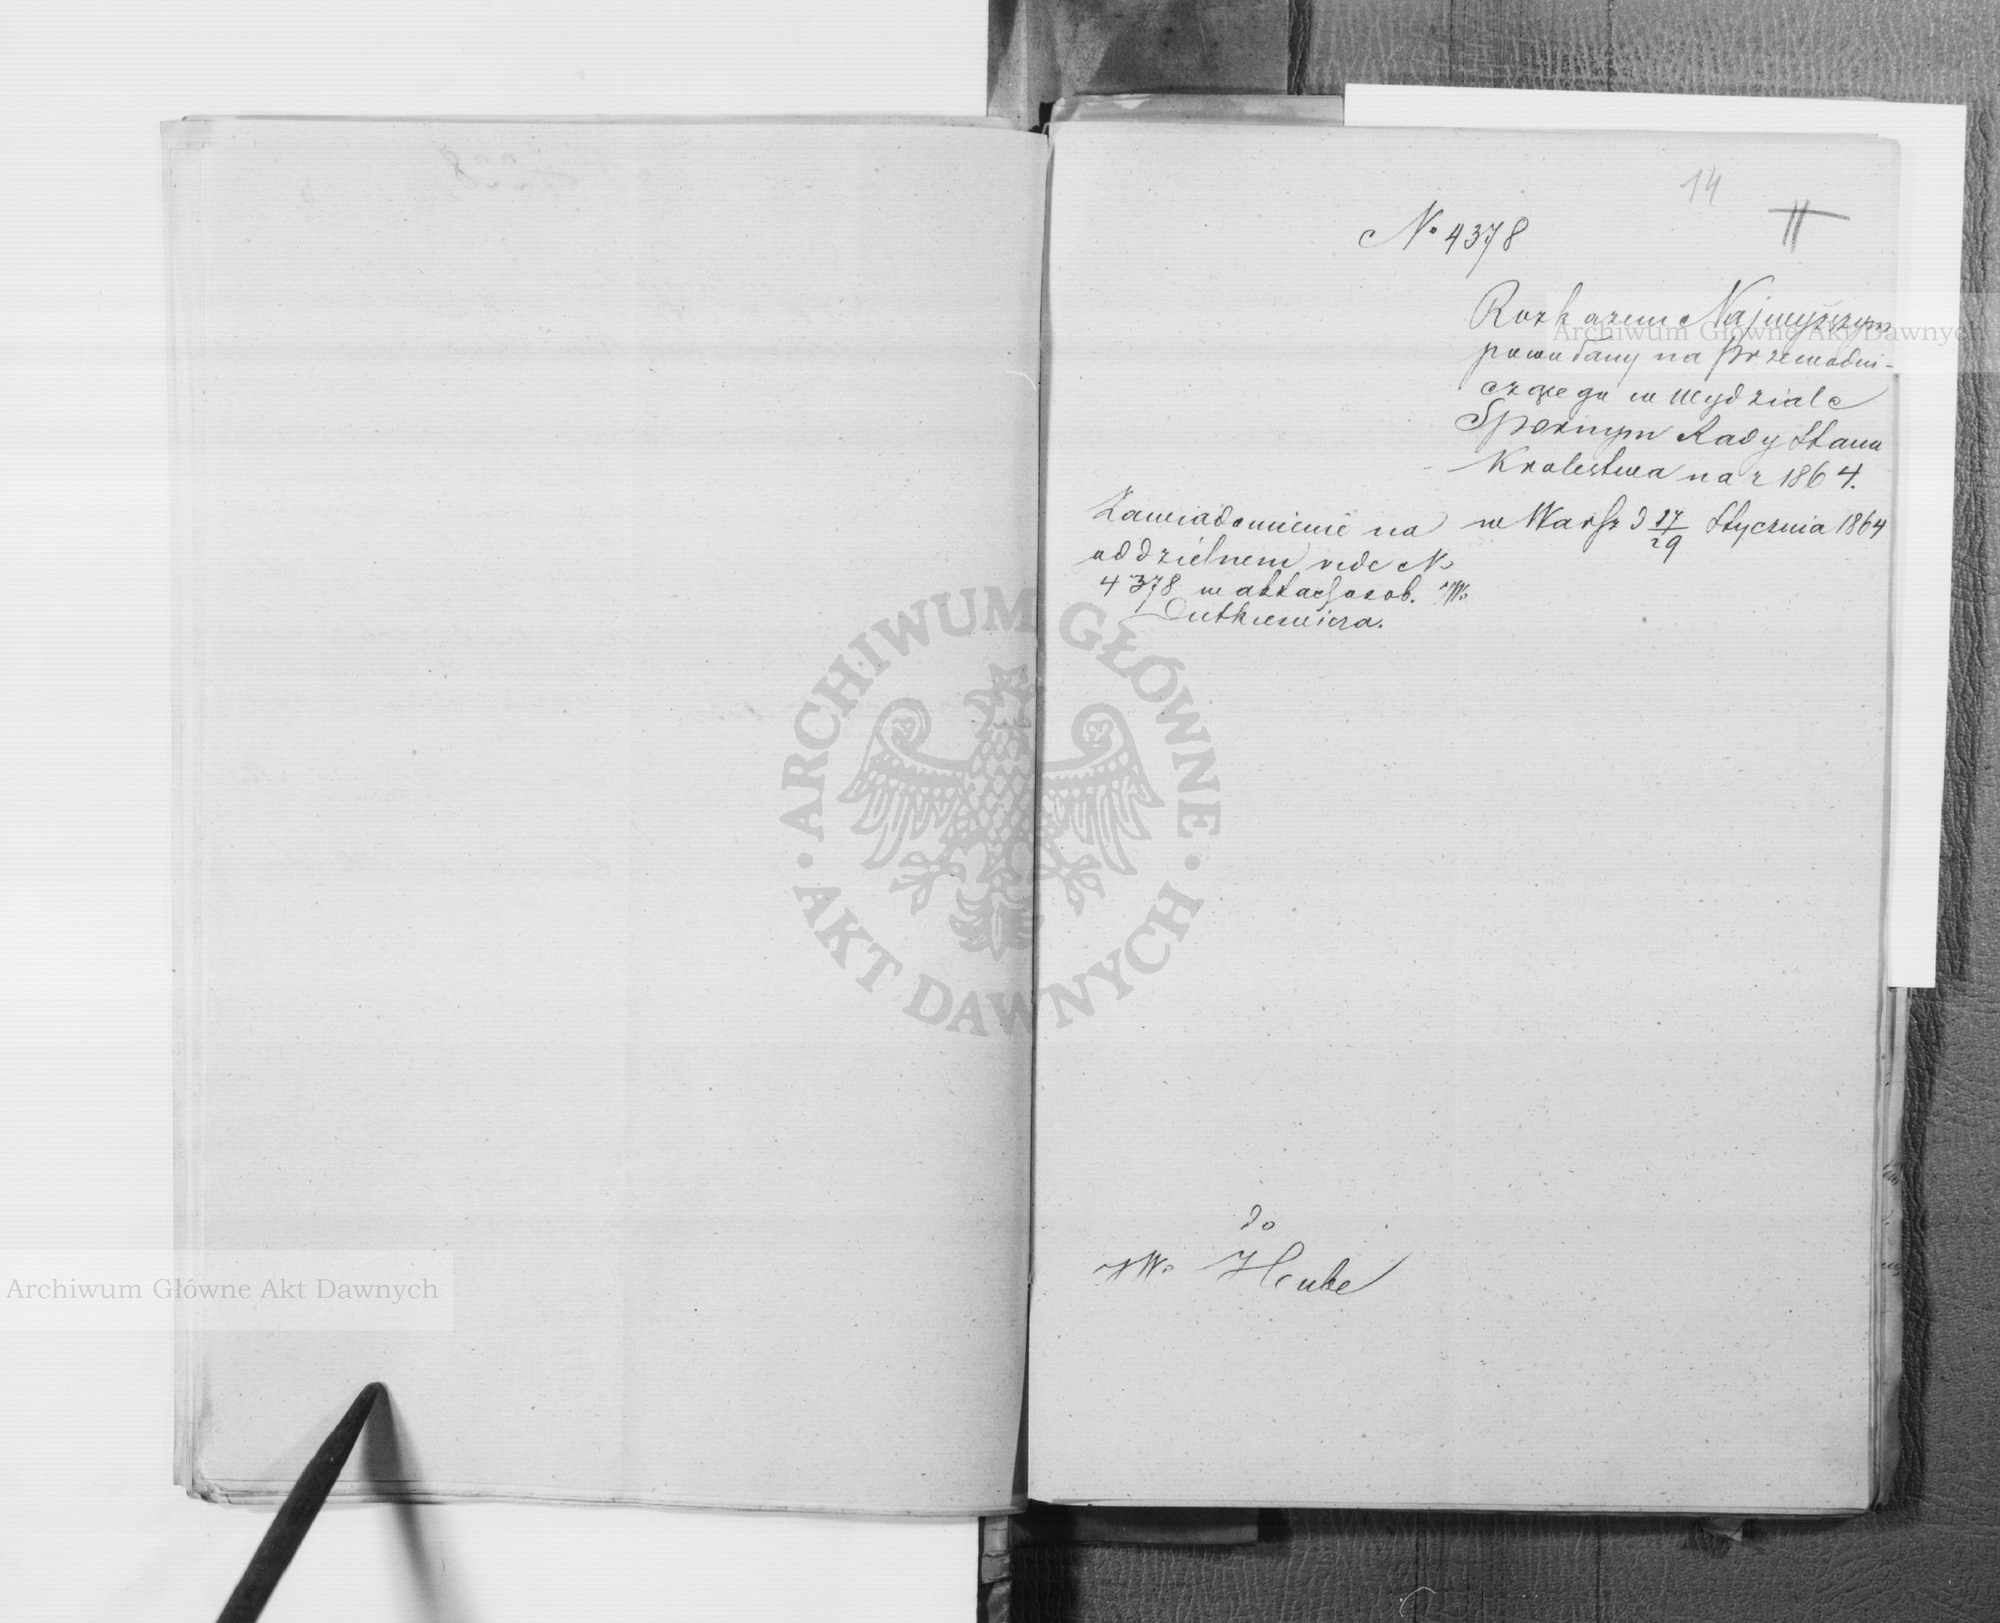 14
11
No 4378
Rozkazem Najwyższym
powołany na Przewodni-
czącego w Wydziale
Spornym Rady Stanu
Królestwa na r 1864.
w Warsz d 17/29 Stycznia 1864
Zawiadomienie na
oddzielnem vide No
4378 w aktach osob. JW.
Dutkiewicza.
do
JW. Heube
Archiwum Główne Akt Dawnych
Archiwum Główne Akt Dawnych
ARCHIWUM GŁÓWNE AKT DAWNYCH